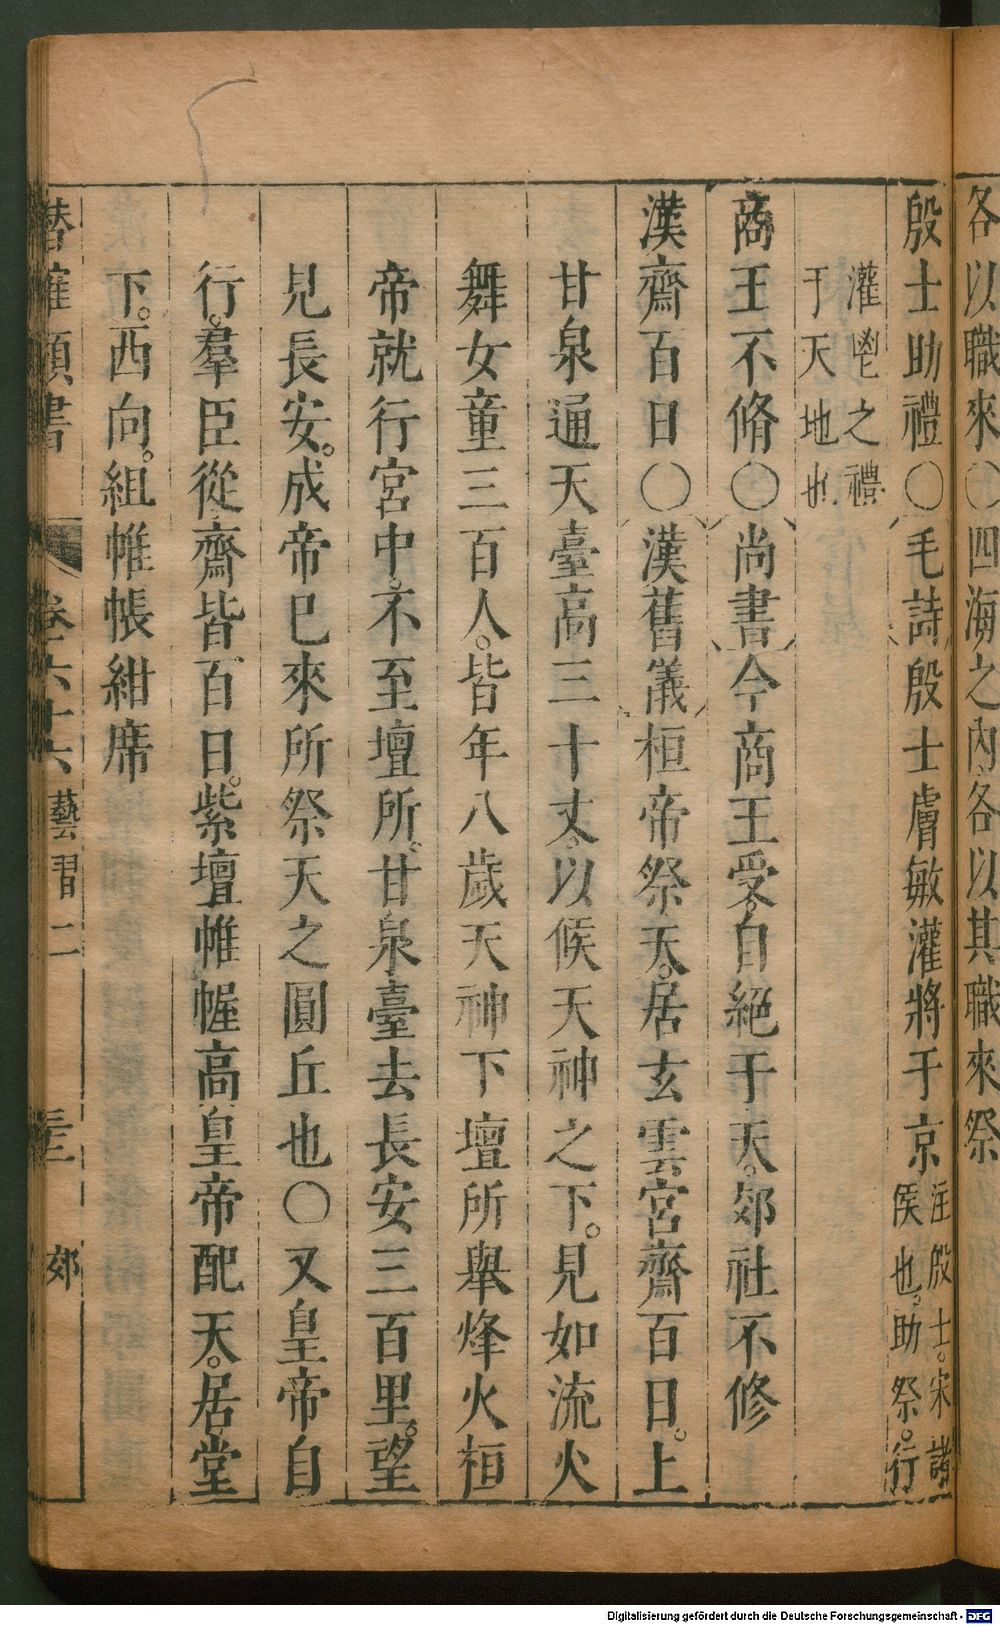 各以職來○四海之內各以其職來祭
殷士助禮○毛詩殷士膚敏灌將于京注殷士。宋諸
侯也。助祭。行
灌鬯之禮
于天地也
商王不脩○尚書今商王受。自絕于天。郊社不修
漢齋百日○漢舊儀桓帝祭天。居玄雲。宮齋百日。上
甘泉通天臺高三十丈。以候天神之下。見如流火
舞女童三百人。皆年八歲天神下壇所舉烽火桓
帝就行宮中。不至壇所。甘泉臺去長安三百里。望
見長安。成帝巳來所祭天之圓丘也○又皇帝自
行。羣臣從齋皆百日。紫壇帷幄高皇帝配天。居堂
下。西向。組帷帳紺席
潛確類書 卷六十六 藝習二 三 郊
Digitalisierung gefördert durch die Deutsche Forschungsgemeinschaft - DFG